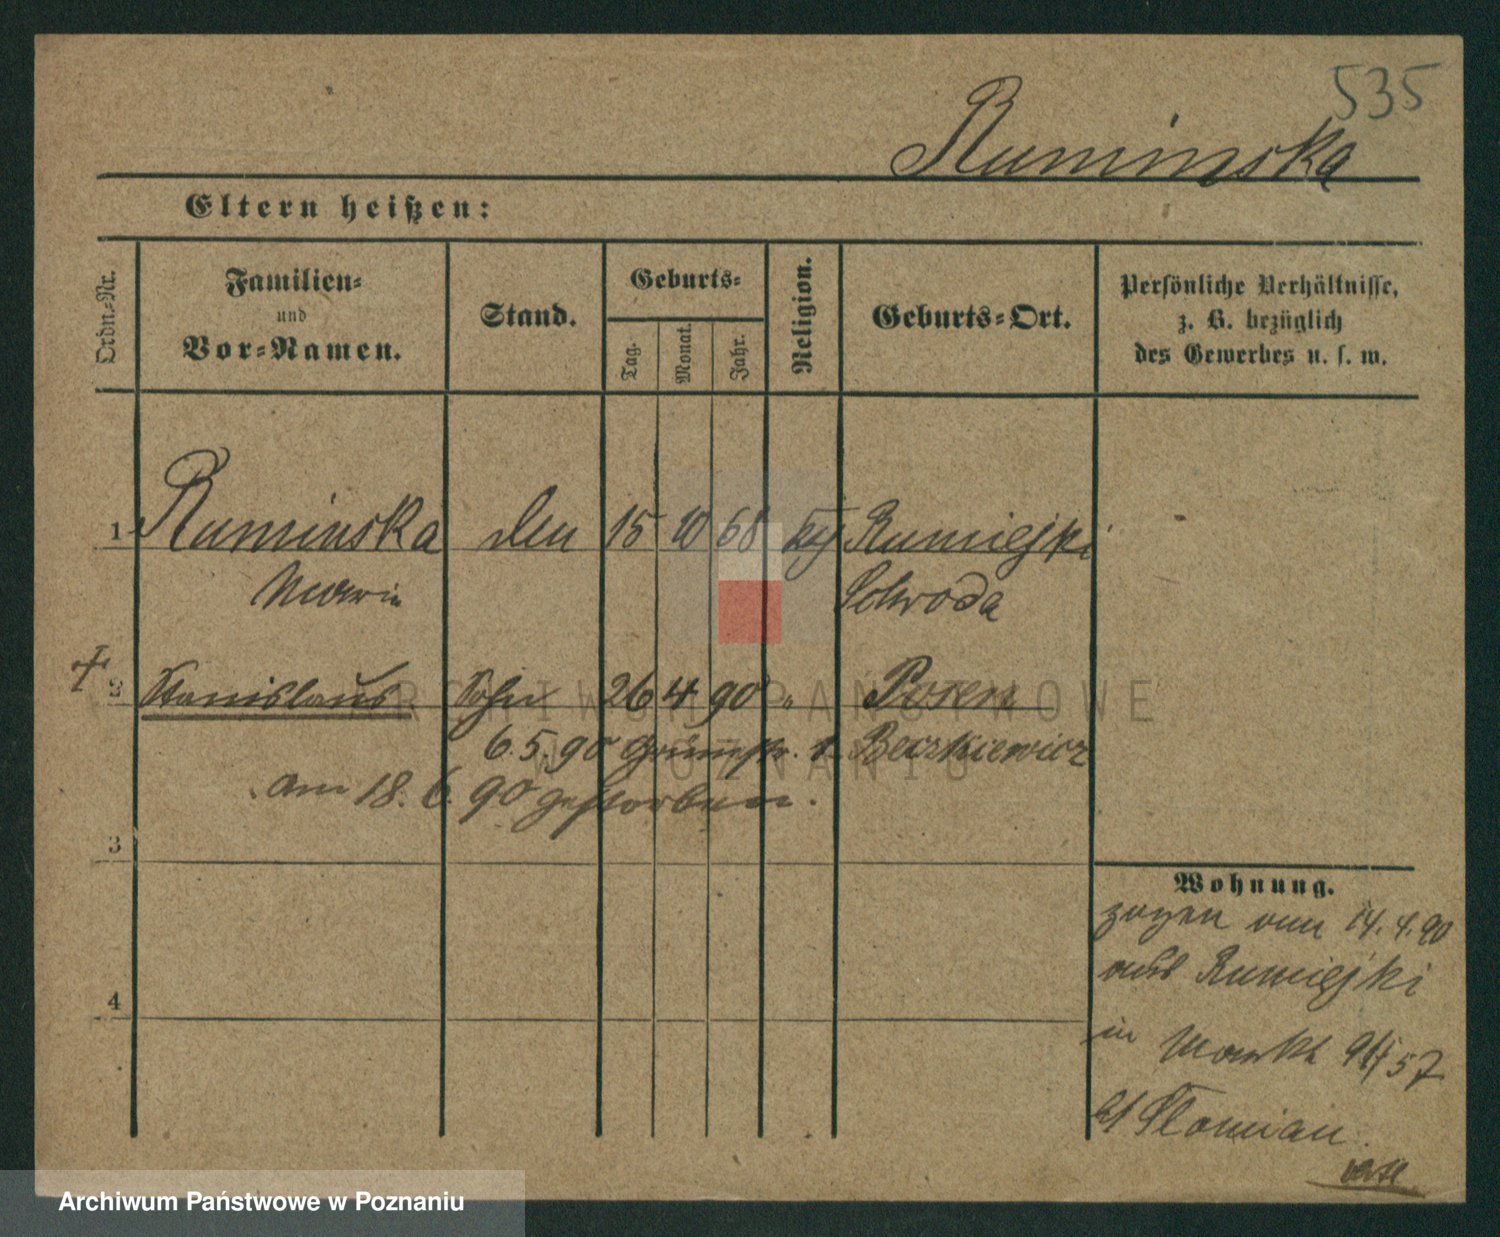 535
Ruminska
Eltern heißen:
Ordn.-Nr.
Familien-
und
Vor-Namen.
Stand.
Geburts-
Tag.
Monat.
Jahr.
Religion.
Geburts-Ort.
Persönliche Verhältnisse,
z. B. bezüglich
des Gewerbes u. s. w.
1 Ruminska 15 10 68 Rumiejki
Marie Schroda
† 2 Stanislaus Sohn 26 4 90 " Posen
6.5.90 Grünstr. 1. Beczkiewicz
am 18. 6. 90 gestorben.
3
4
Wohnung.
zogen vom 14.4.90
aus Rumiejki
in Markt 57
bei Slomian.
ARCHIWUM PAŃSTWOWE
W POZNANIU
Archiwum Państwowe w Poznaniu